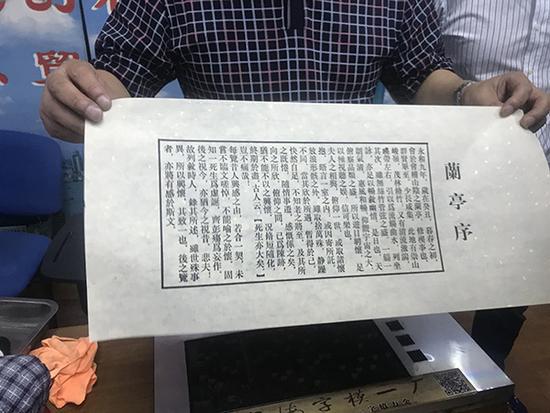 蘭亭序
永和九年，歲在癸丑，暮春之初，
會於會稽山陰之蘭亭，修禊事也。
群賢畢至，少長咸集。此地有崇山
峻嶺，茂林修竹；又有清流激湍，
映帶左右。引以為流觴曲水，列坐
其次。雖無絲竹管弦之盛，一觴一
詠，亦足以暢敘幽情。是日也，天
朗氣清，惠風和暢。仰觀宇宙之大，
俯察品類之盛，所以遊目騁懷，足
以極視聽之娛，信可樂也。
夫人之相與，俯仰一世，或取諸懷
抱，晤言一室之內；或因寄所託，
放浪形骸之外。雖取捨萬殊，靜躁
不同，當其欣於所遇，暫得於己，
快然自足，不知老之將至。及其所
之既倦，情隨事遷，感慨係之矣。
向之所欣，俯仰之間，已為陳跡，
猶不能不以之興懷。況修短隨化，
終期於盡。古人云：「死生亦大矣。」
豈不痛哉！
每覽昔人興感之由，若合一契，未
嘗不臨文嗟悼，不能喻之於懷。固
知一死生為虛誕，齊彭殤為妄作。
後之視今，亦猶今之視昔。悲夫！
故列敘時人，錄其所述，雖世殊事
異，所以興懷，其致一也。後之覽
者，亦將有感於斯文。
海字模一厂